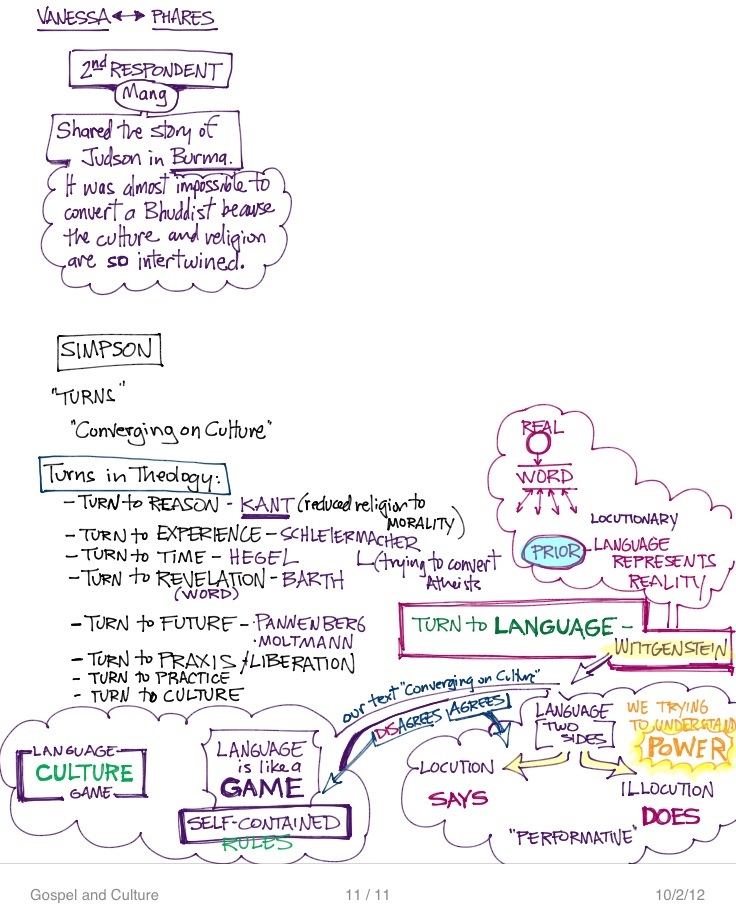 VANESSA ↔ PHARES
2nd RESPONDENT
Mang
Shared the story of
Judson in Burma.
It was almost impossible to
convert a Bhuddist because
the culture and religion
are so intertwined.
SIMPSON
"TURNS"
"Converging on Culture"
Turns in Theology:
- TURN to REASON - KANT (reduced religion to
MORALITY)
- TURN to EXPERIENCE - SCHLEIERMACHER
(trying to convert
Atheists
- TURN to TIME - HEGEL
- TURN to REVELATION - BARTH
(WORD)
- TURN to FUTURE - PANNENBERG
· MOLTMANN
- TURN to PRAXIS / LIBERATION
- TURN to PRACTICE
- TURN to CULTURE
REAL
WORD
LOCUTIONARY
PRIOR - LANGUAGE
REPRESENTS
REALITY
TURN to LANGUAGE -
WITTGENSTEIN
our text "Converging on Culture"
DISAGREES AGREES
LANGUAGE
CULTURE
GAME
LANGUAGE
is like a
GAME
SELF-CONTAINED
RULES
LANGUAGE
TWO
SIDES
WE TRYING
TO UNDERSTAND
POWER
LOCUTION
SAYS
ILLOCUTION
DOES
"PERFORMATIVE"
Gospel and Culture
11 / 11
10/2/12